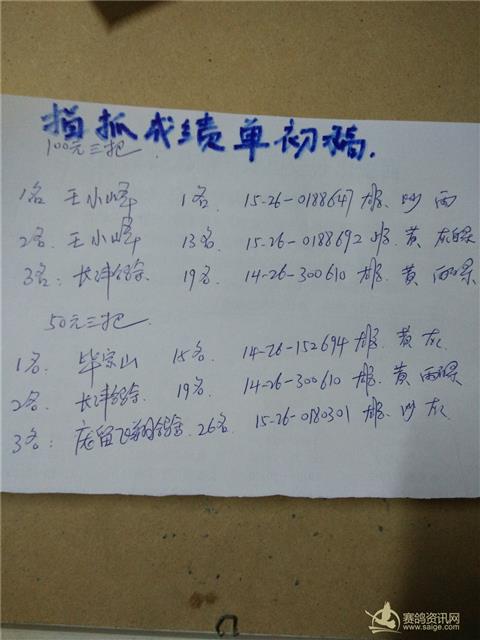 指抓成绩单初稿.
100元三把
1名 王小峰 1名. 15-26-0188647 雄. 砂 雨
2名. 王小峰 13名. 15-26-0188692 雄. 黄
3名: 长沣鸽舍 19名. 14-26-300610 雄. 黄 雨
50元三把.
1名. 毕宗山 15名. 14-26-152694 雄. 黄 灰.
2名. 长沣鸽舍. 19名. 14-26-300610 雄. 黄 雨
3名: 庞留飞翔鸽舍. 26名. 15-26-0180301 雄. 砂 灰.
赛鸽资讯网
www.saige.com